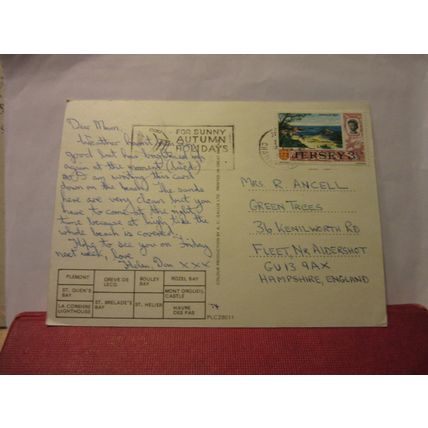 Dear Mum,
Weather hasn't been
good but has brightened up
again at the moment (Wed)
so I am writing this card
down on the beach. The sands
here are very clean but you
have to come at the right
time because at high tide the
whole beach is covered.
Hoping to see you on Friday
next week, Love
Helen, Don X X X
FOR SUNNY
AUTUMN
HOLIDAYS
JERSEY 3
MRS R ANCELL
GREEN TREES
36 KENILWORTH RD
FLEET, NR ALDERSHOT
GU13 9AX
HAMPSHIRE, ENGLAND
PLEMONT
GREVE DE LECQ
BOULEY BAY
ROZEL BAY
ST. OUEN'S BAY
MONT ORGUEIL CASTLE
LA CORBIERE LIGHTHOUSE
ST. BRELADE'S BAY
ST. HELIER
HAVRE DES PAS
PLC28011